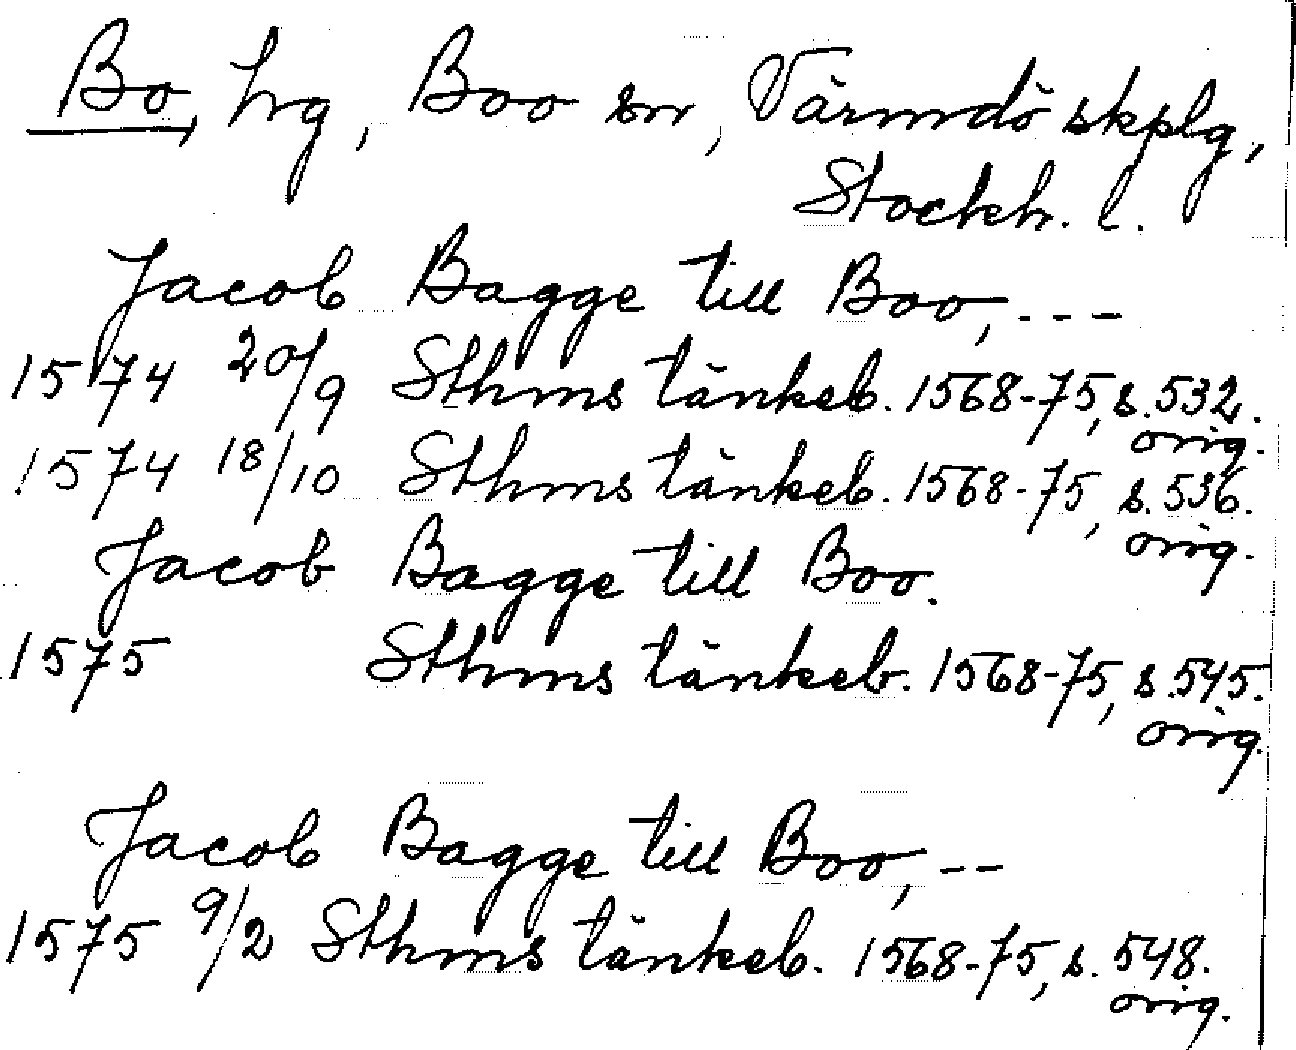 Bo, hg, Boo sn, Värmdö skplg,
Stockh. l.
Jacob Bagge till Boo, ---
1574 20/9 Sthms tänkeb. 1568-75, s. 532.
orig.
1574 18/10 Sthms tänkeb. 1568-75, s. 536.
orig.
Jacob Bagge till Boo.
1575 Sthms tänkeb. 1568-75, s. 545.
orig.
Jacob Bagge till Boo, --
1575 9/2 Sthms tänkeb. 1568-75, s. 548.
orig.